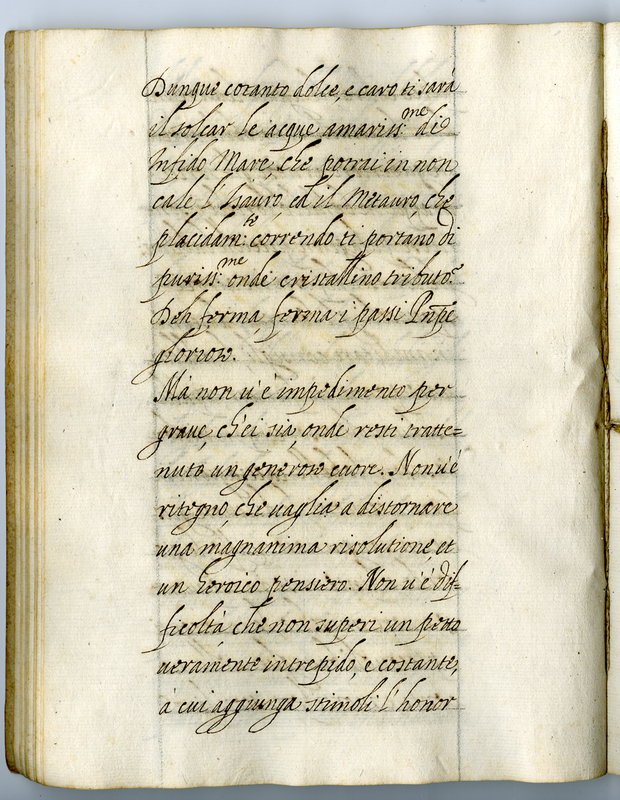 Dunque cotanto dolce, e caro ti sarà
il solcar le acque amariss:me di
Infido Mare, che potrai in non
cale l'Isauro, ed il Metauro, che
placidam:te correndo ti portano di
puriss:me onde cristallino tributo?
Deh ferma, ferma i passi Pnpe
glorioso.
Mà non u'è impedimento per
graue, ch'ei sia, onde resti tratte=
nuto un generoso cuore. Non u'è
ritegno, che uaglia a distornare
una magnanima risolutione, et
un heroico pensiero. Non u'è dif=
ficoltà che non superi un petto
ueramente intrepido, e costante,
à cui aggiunga stimoli l'honor